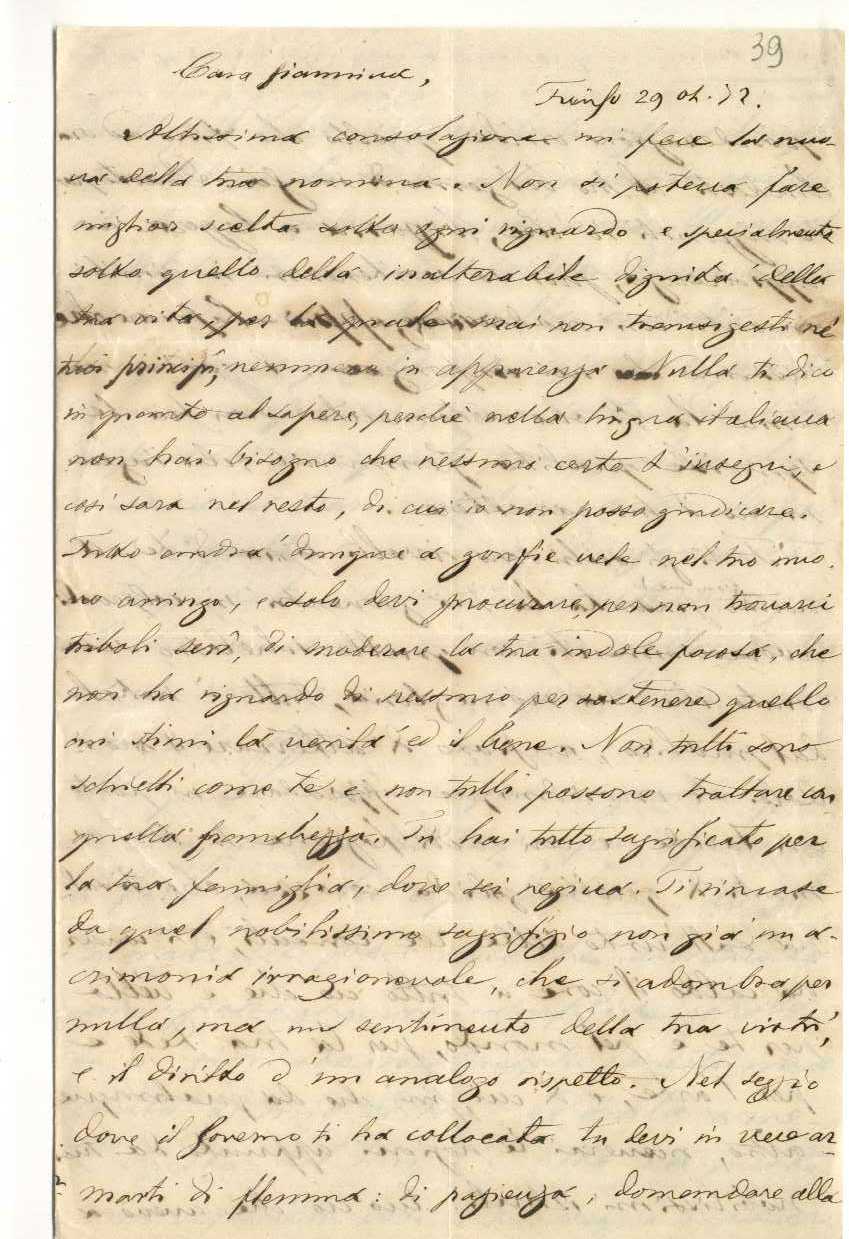 39
Cara Giannina,
29 ott. 72.
Altissima consolazione mi fece la nuo-
va della tua nomina. Non si poteva fare
miglior scelta sotto ogni riguardo e specialmente
sotto quello della inalterabile dignità della
tua vita, per la quale mai non transigesti nè
tuoi principî, nemmeno in apparenza. Nulla ti dico
in quanto al sapere, perchè nella lingua italiana
non hai bisogno che nessuno certo t'insegni, e
così sarà nel resto, di cui io non posso giudicare.
Tutto andrà dunque a gonfie vele nel tuo nuo-
vo arringo, e solo devi procurare, per non trovarvi
triboli serî, di moderare la tua indole focosa, che
non ha riguardo di nessuno per sostenere quello
cui stimi la verità ed il bene. Non tutti sono
schietti come te e non tutti possono trattare con
quella franchezza. Tu hai tutto sagrificato per
la tua famiglia, dove sei regina. Ti rimase
da quel nobilissimo sagrifizio non già un a-
crimonia irragionevole, che si adombra per
nulla, ma un sentimento della tua virtù,
e il diritto d'un analogo rispetto. Nel seggio
dove il Governo ti ha collocata tu devi in vece ar-
marti di flemma: di pazienza, domandare alla